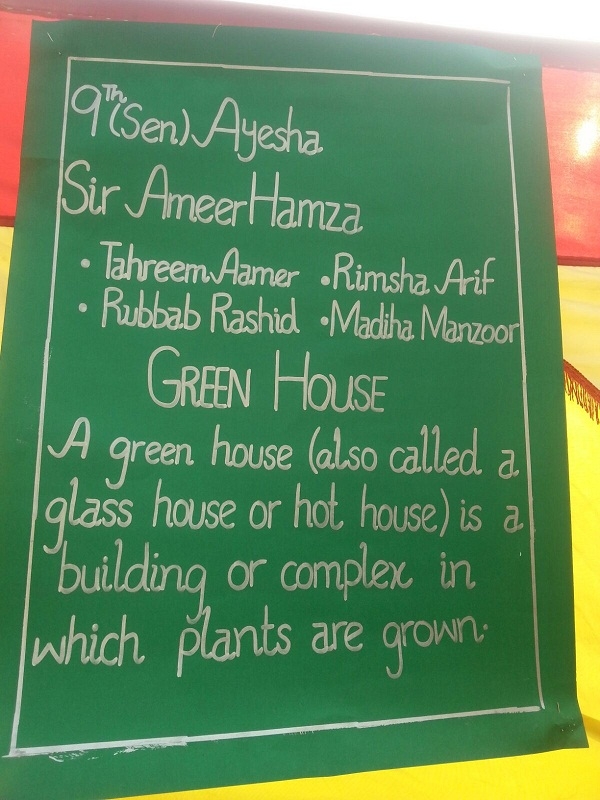 9Th (Sen) Ayesha
Sir Ameer Hamza
• Tahreem Aamer • Rimsha Arif
• Rubbab Rashid • Madiha Manzoor
GREEN HOUSE
A green house (also called a
glass house or hot house) is a
building or complex in
which plants are grown.